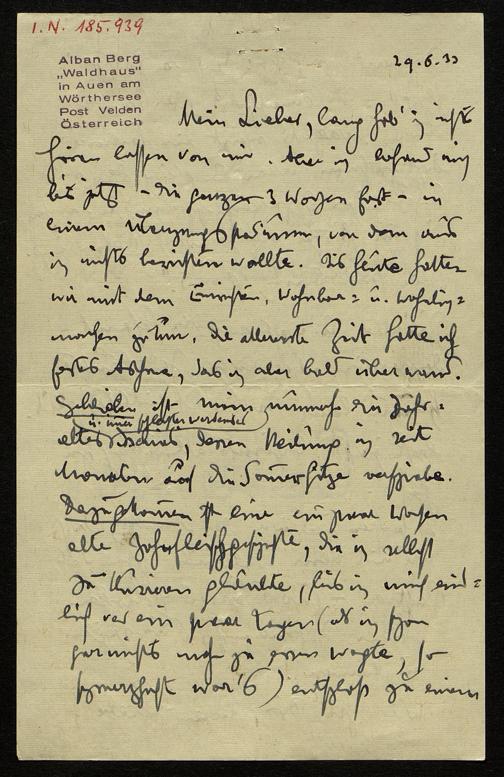 I.N. 185.939
Alban Berg
„Waldhaus"
in Auen am
Wörthersee
Post Velden
Österreich
29.6.33
Mein Lieber, lang hab' ich nichts
hören lassen von mir. Aber ich befand mich
bis jetzt – die ganzen 3 Wochen fast – in
einem Übergangsstadium, von dem aus
ich nichts berichten wollte. Bis heute hatten
wir mit dem Einrichten, Wohnbar= u. wohnlich=
machen zu tun, die allererste Zeit hatte ich
festes Asthma, das ich aber bald überwand.
Geblieben ist mein nunmehr ein Jahr=
u. immer schlechter werdendes
altes, dessen Heilung ich seit
Monaten auf die Sommerhitze verschiebe.
Dazugekommen ist eine ein paar Wochen
alte Zahnfleischgeschichte, die ich selbst
zu kurieren glaubte, bis ich mich end=
lich vor ein paar Tagen (als ich schon
gar nichts mehr zu essen wagte, so
schmerzhaft war's) entschloß zu einem